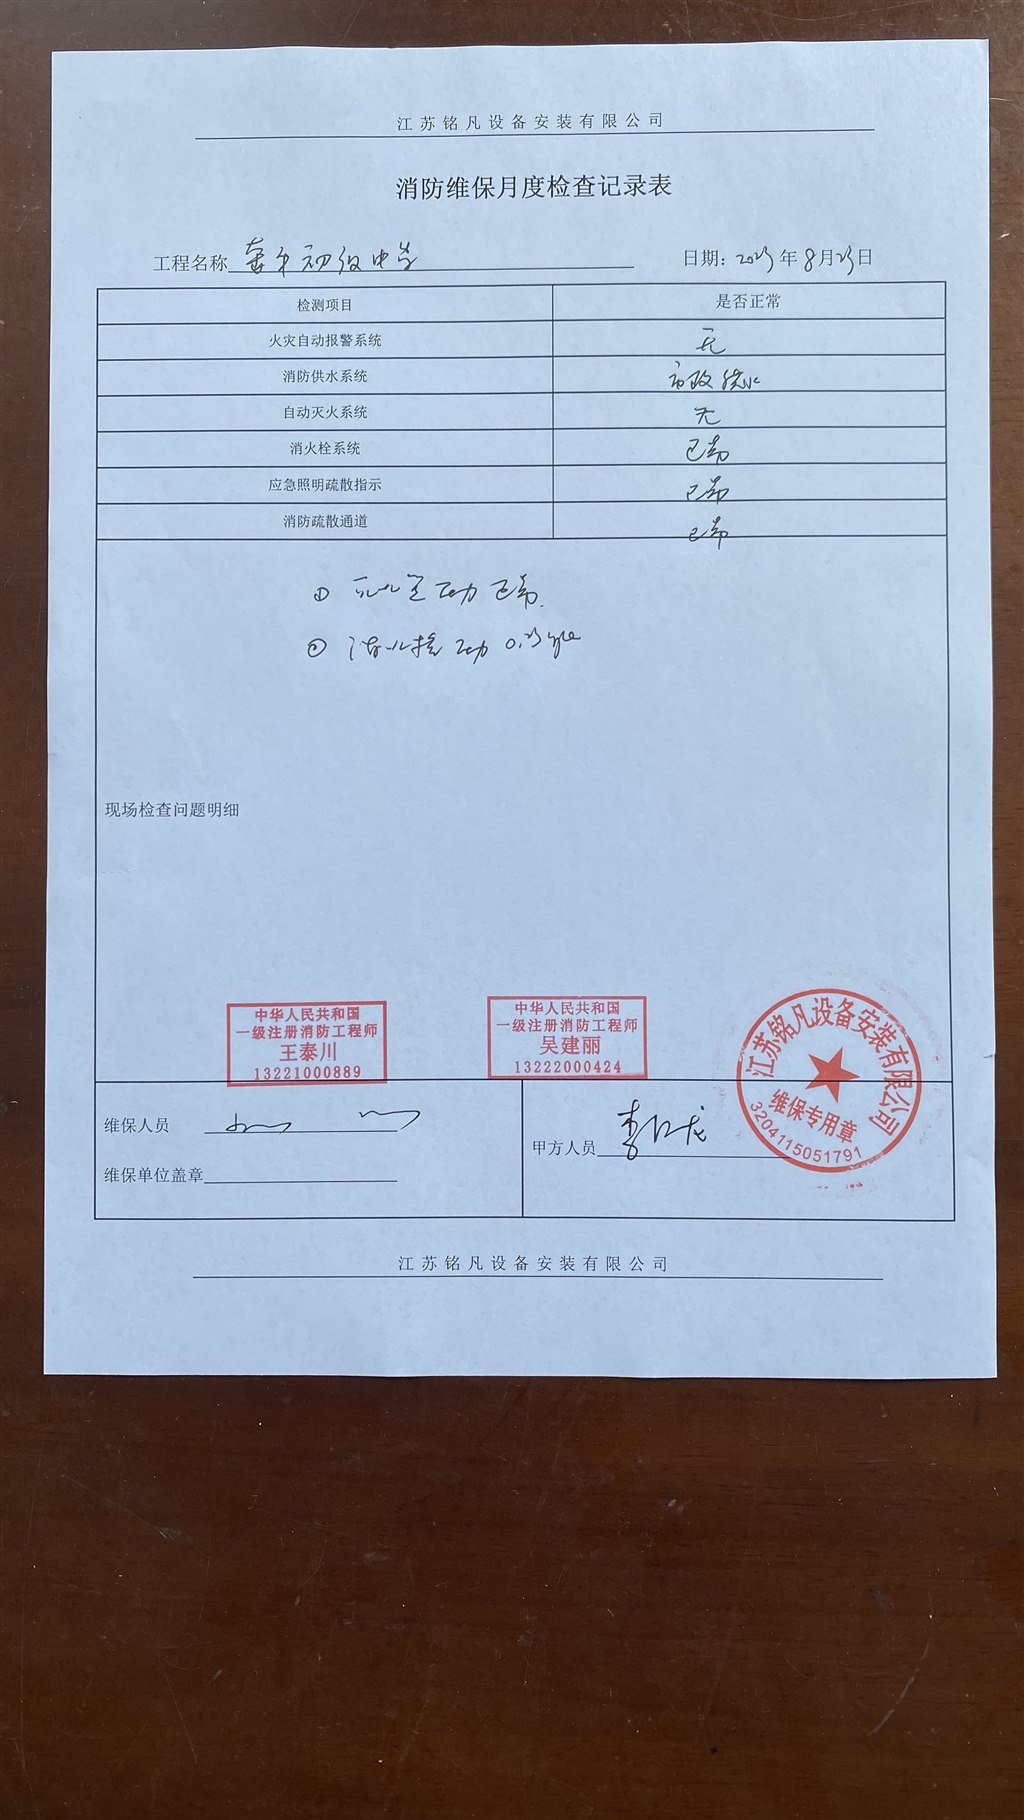 江苏铭凡设备安装有限公司
消防维保月度检查记录表
工程名称 初级中学 日期: 2023年8月23日
检测项目 是否正常
火灾自动报警系统 无
消防供水系统 市政供水
自动灭火系统 无
消火栓系统 正常
应急照明疏散指示 正常
消防疏散通道 正常
① 灭火器压力正常.
② 消火栓压力0.23mpa
现场检查问题明细
中华人民共和国
一级注册消防工程师
王泰川
13221000889
中华人民共和国
一级注册消防工程师
吴建丽
13222000424
江苏铭凡设备安装有限公司
维保专用章
3204115051791
维保人员
甲方人员
维保单位盖章
江苏铭凡设备安装有限公司